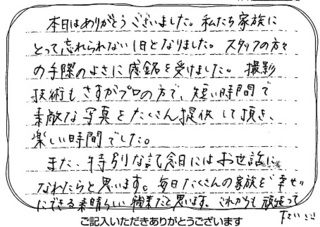 本日はありがとうございました。私たち家族に
とって忘れられない1日となりました。スタッフの方々
の手際のよさに感銘を受けました。撮影
技術もさすがプロの方で、短い時間で
素敵な写真をたくさん提供して頂き、
楽しい時間でした。
また、特別な記念日にはお世話に
なれたらと思います。毎日たくさんの家族を幸せ
にできる素晴らしい職業だと思います。これからも頑張って
下さい
ご記入いただきありがとうございます